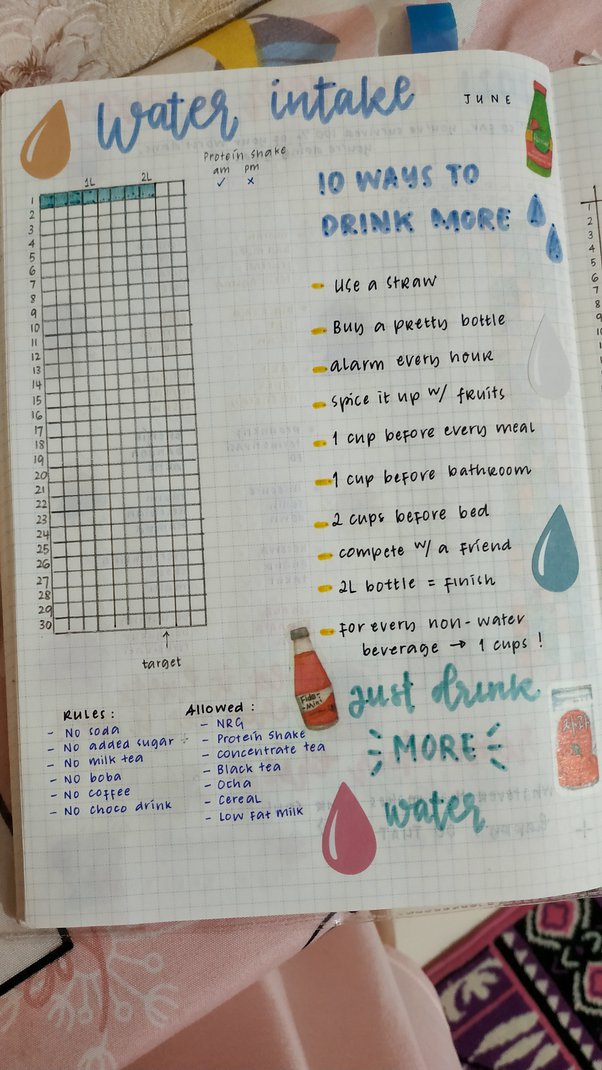 Water intake
JUNE
Protein shake
am pm
✓ x
1L 2L
1
2
3
4
5
6
7
8
9
10
11
12
13
14
15
16
17
18
19
20
21
22
23
24
25
26
27
28
29
30
target
10 WAYS TO
DRINK MORE
- use a straw
- Buy a pretty bottle
- alarm every hour
- spice it up w/ fruits
- 1 cup before every meal
- 1 cup before bathroom
- 2 cups before bed
- compete w/ a friend
- 2L bottle = finish
- for every non-water
beverage → 1 cups !
Rules :
- No soda
- No added sugar
- No milk tea
- No boba
- No coffee
- No choco drink
Allowed :
- NRG
- Protein shake
- concentrate tea
- Black tea
- Ocha
- Cereal
- Low fat milk
just drink
MORE
water